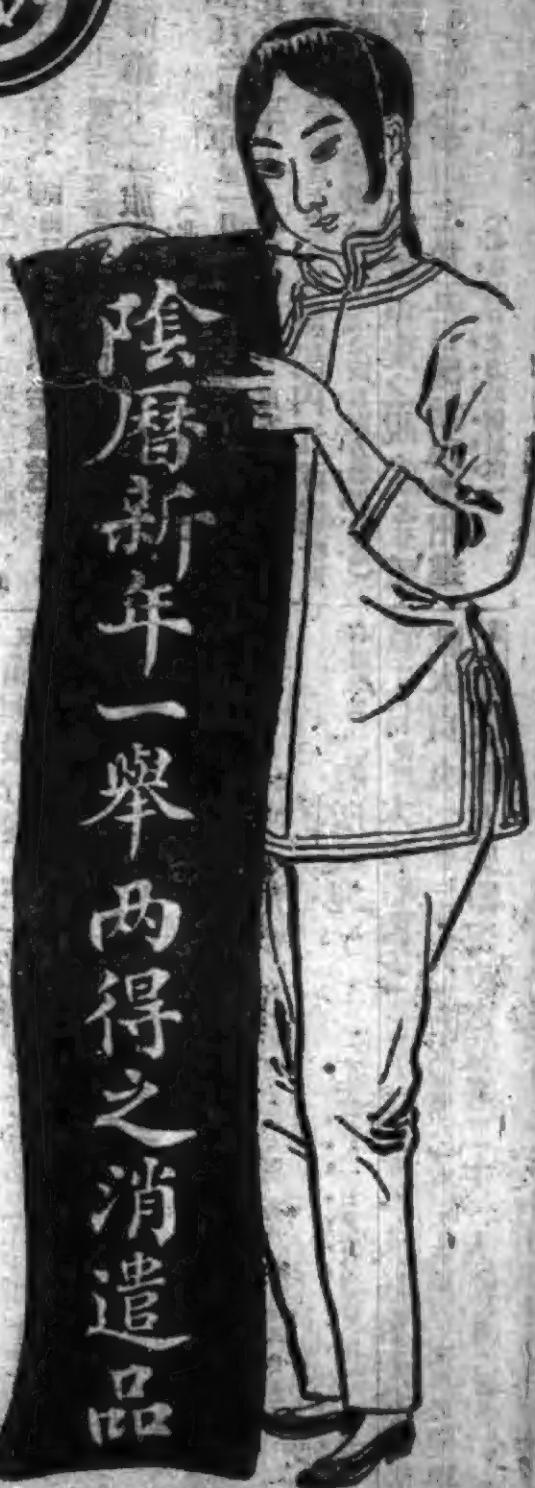 陰曆新年一舉两得之消遣品